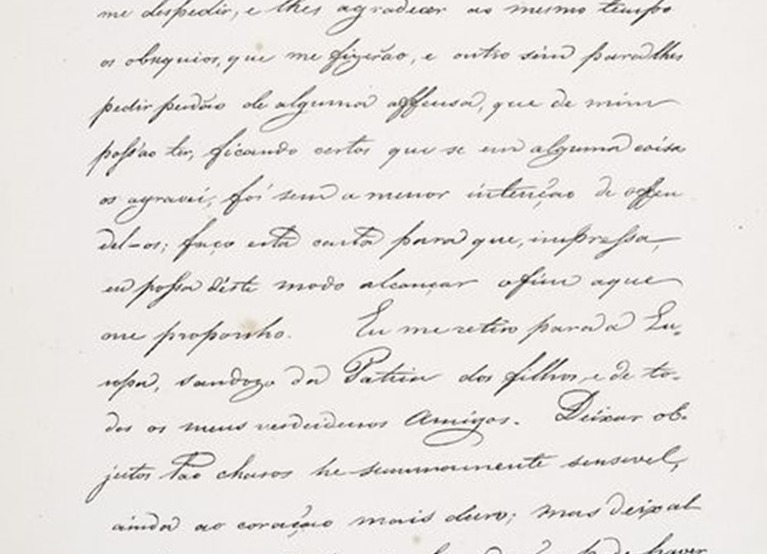 me despedir, e lhes agradecer ao mesmo tempo
os obsequios, que me fizerão, e outro sim para lhes
pedir perdão de alguma offensa, que de mim
possão ter, ficando certos que se em alguma coisa
os agravei, foi sem a menor intenção de offen
del-os; faço esta carta para que, impressa,
eu possa déste modo alcançar o fim a que
me proponho. Eu me retiro para a Eu-
ropa, saudozo da Patria dos filhos, e de to-
dos os meus verdadeiros Amigos. Deixar ob-
jectos tão charos he summamente sensivel,
ainda ao coração mais duro; mas deixal
haver